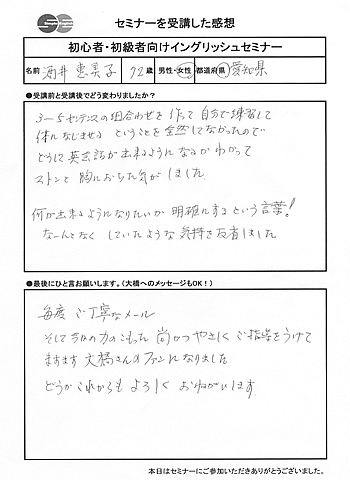 セミナーを受講した感想
初心者・初級者向けイングリッシュセミナー
名前 酒井 恵美子 72歳 男性・女性 都道府県 愛知県
●受講前と受講後でどう変わりましたか？
3〜5センテンスの組合わせを作って自分で練習して
体になじませる ということを全然してなかったので
どうして英会話が出来るようになるかわかって
ストンと胸におちた気がしました
何が出来るようになりたいか 明確にするという言葉!
なーんとなく していたような気持を反省しました
●最後にひと言お願いします。（大橋へのメッセージもOK！）
毎度 ご丁寧なメール
そして力のこもった 尚かつやさしく ご指導をうけて
ますます 大橋さんのファンになりました
どうかこれからも よろしく おねがいします
本日はセミナーにご参加いただきありがとうございました。